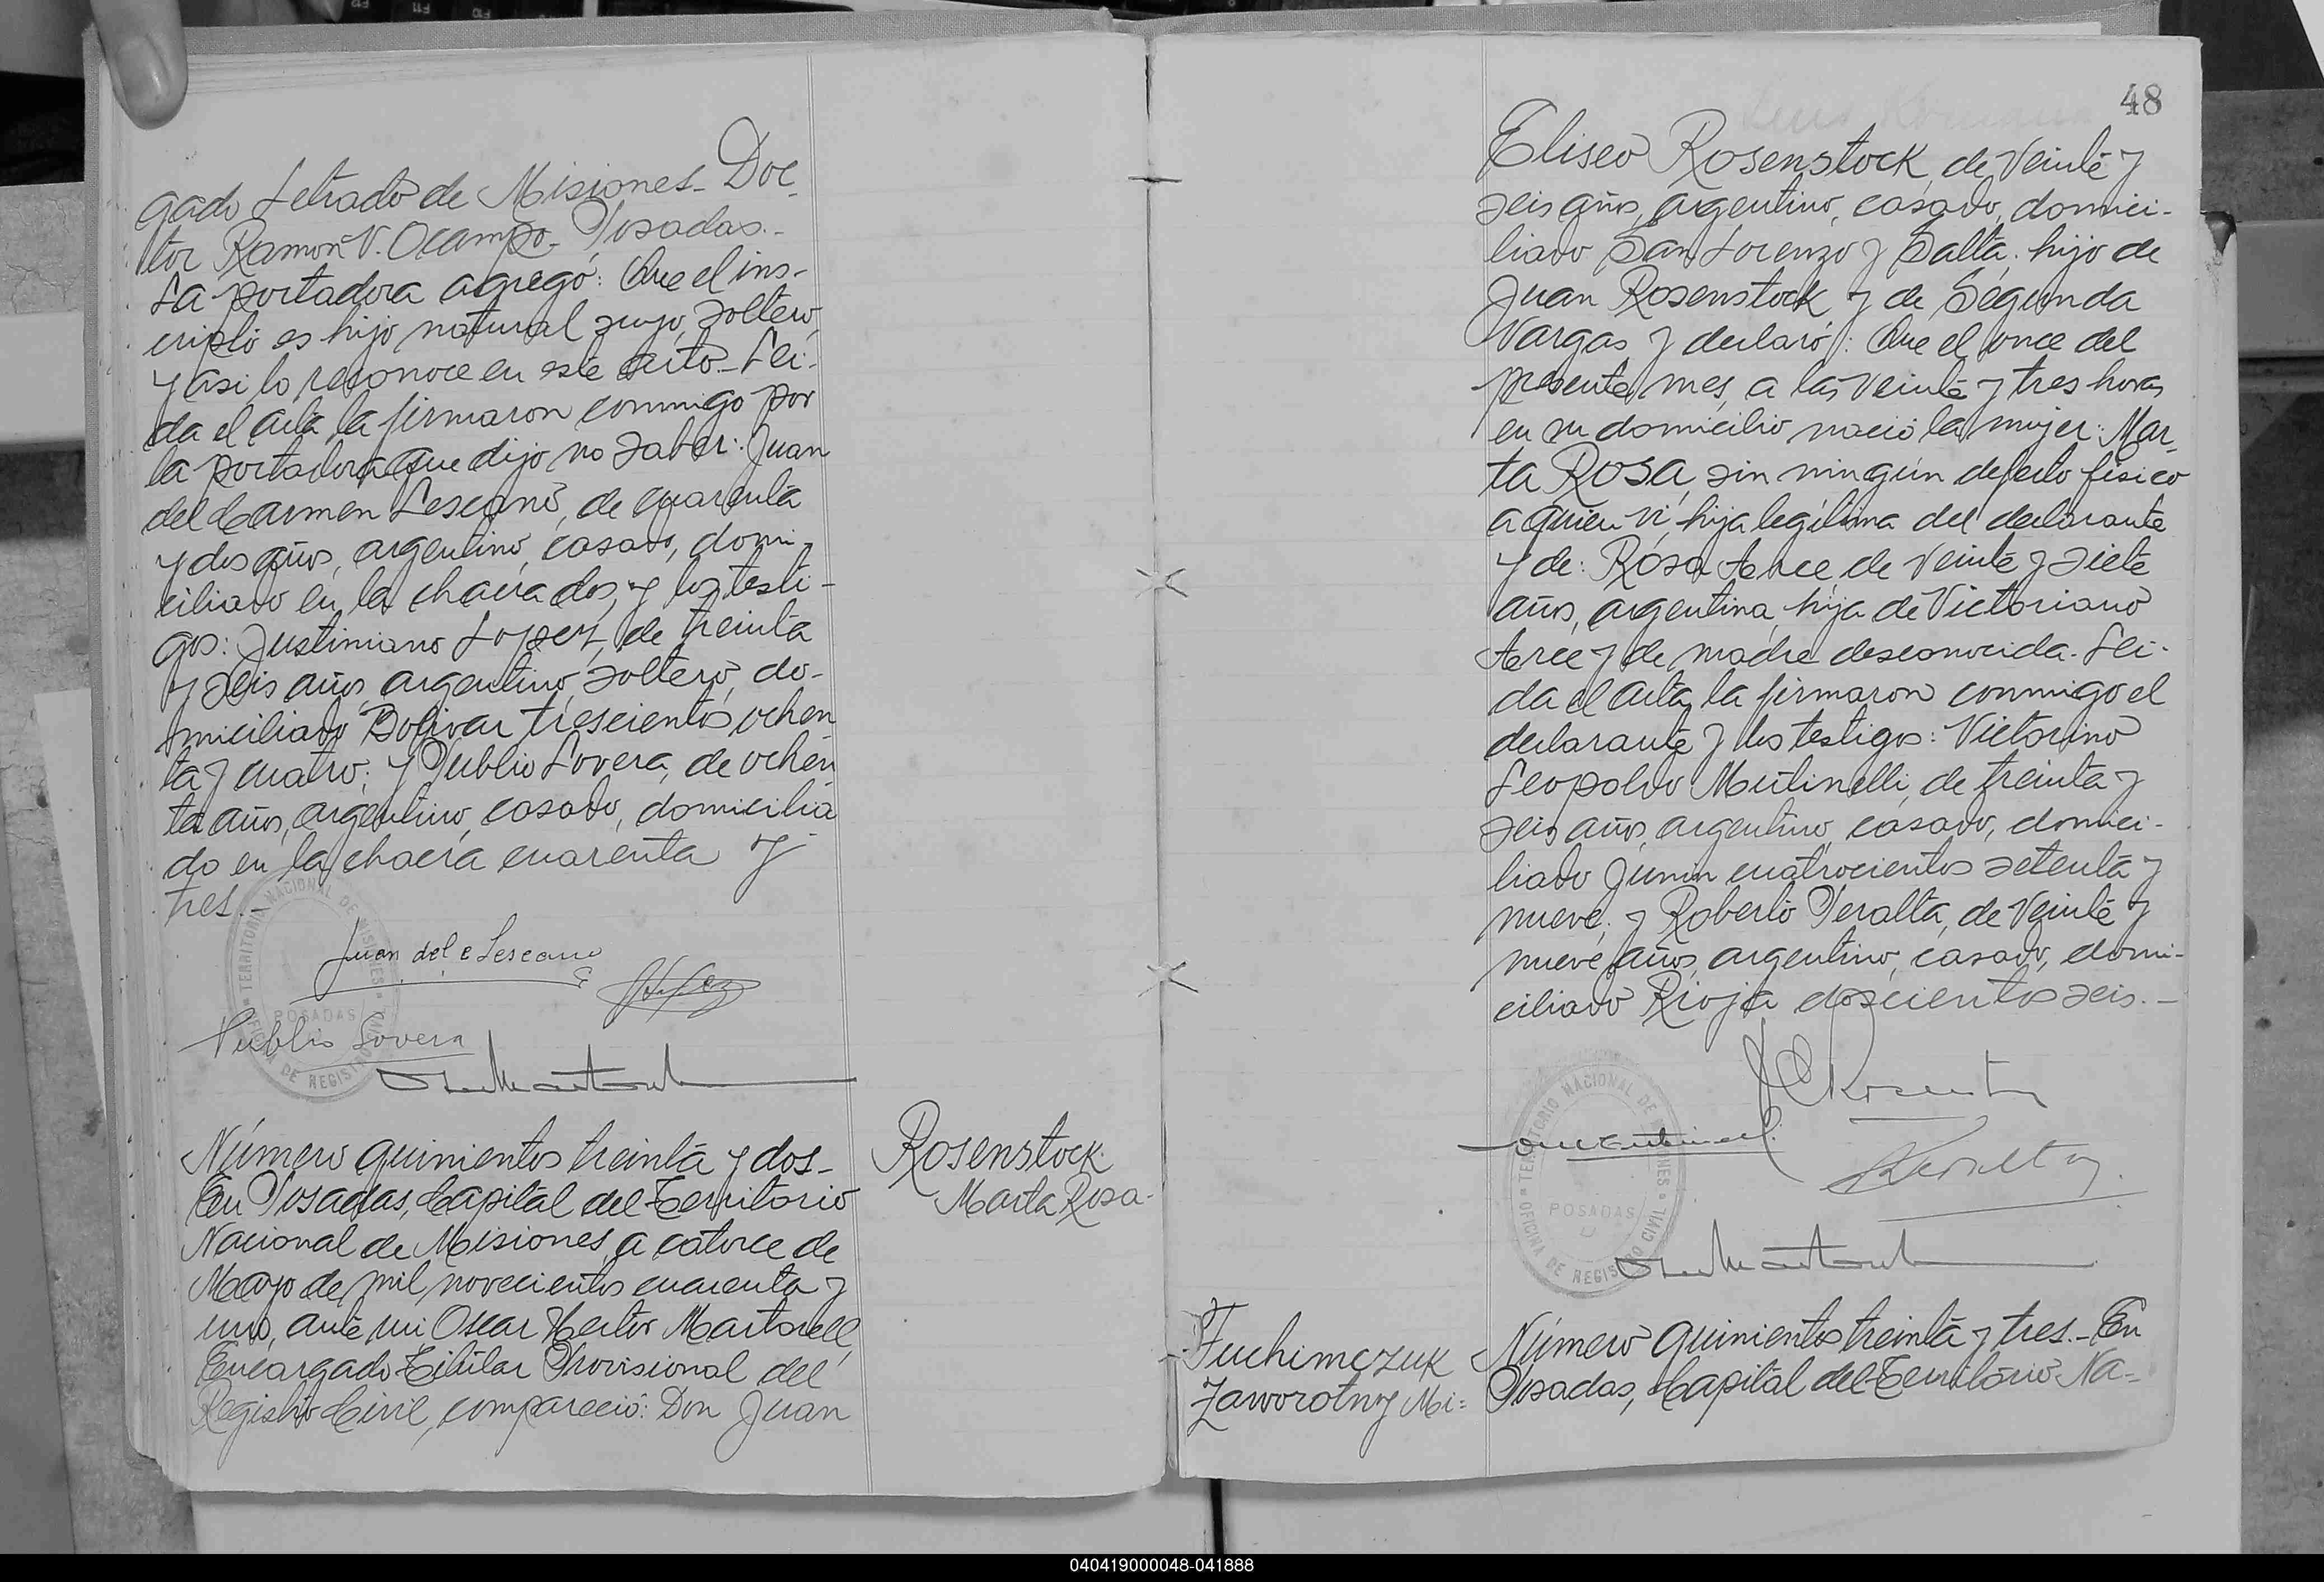 gado Letrado de Misiones_ Doc_
tor Ramon V. Ocampo_ Posadas._
La portadora agregó: Que el ins-
cripto es hijo natural suyo, soltero,
y asi lo reconoce en este acto_ Lei-
da el acta, la firmaron conmigo por
la portadora que dijo no saber: Juan
del Carmen Lescano, de cuarenta
y dos años, argentino, casado, domi-
ciliado en la chacra dos, y los testi-
gos: Justiniano Lopez, de treinta
y seis años, argentino, soltero, do-
miciliado Bolivar trescientos ochen
ta y cuatro; y Publio Lovera, de ochen
ta años, argentino, casado, domicilia
do en la chacra cuarenta y
tres._
Juan del C Lescano
Publio Lovera
TERRITORIO NACIONAL DE MISIONES
POSADAS
OFICINA DE REGISTRO CIVIL
Número quinientos treinta y dos_
En Posadas, Capital del Territorio
Nacional de Misiones, a catorce de
Mayo de mil novecientos cuarenta y
uno, ante mi Oscar Hector Martorell,
Encargado Titular Provisional del
Registro Civil, compareció: Don Juan
Rosenstock
Marta Rosa-
48
Eliseo Rosenstock, de veinte y
seis años, argentino, casado, domici-
liado San Lorenzo y Salta, hijo de
Juan Rosenstock y de Segunda
Vargas y declaró: Que el once del
presente mes, a las veinte y tres horas
en su domicilio nació la mujer: Mar_
ta Rosa, sin ningún defecto físico
a quien ví, hija legítima del declarante
y de: Rosa Arce, de veinte y siete
años, argentina, hija de Victoriano
Arce y de madre desconocida. Lei-
da el acta, la firmaron conmigo el
declarante y los testigos: Victorino
Leopoldo Mutinelli, de treinta y
seis años, argentino, casado, domici-
liado Junin cuatrocientos setenta y
nueve; y Roberto Peralta, de veinte y
nueve años, argentino, casado, domi-
ciliado Rioja doscientos seis._
TERRITORIO NACIONAL DE MISIONES
POSADAS
OFICINA DE REGISTRO CIVIL
Fuchimczuk
Zaworotny Mi=
Número quinientos treinta y tres._ En
Posadas, Capital del Territorio Na=
040419000048-041888